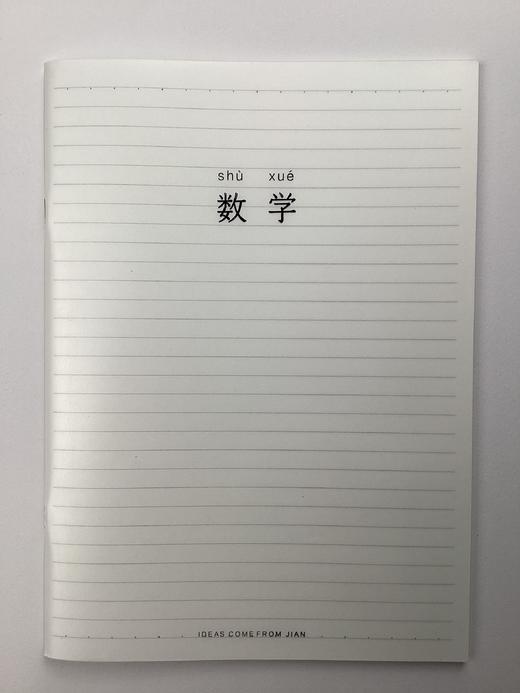 shù xué
数学
IDEAS COME FROM JIAN